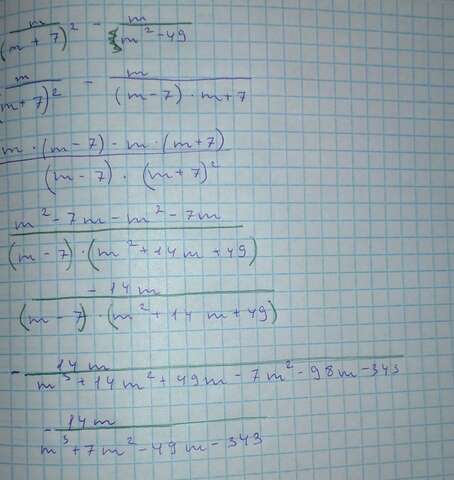 m/(m + 7)² - m/(m² - 49)
m/(m + 7)² - m/((m - 7) · m + 7)
(m · (m - 7) - m · (m + 7))/((m - 7) · (m + 7)²)
(m² - 7m - m² - 7m)/((m - 7) · (m² + 14m + 49))
(- 14m)/((m - 7) · (m² + 14m + 49))
- 14m/(m³ + 14m² + 49m - 7m² - 98m - 343)
- 14m/(m³ + 7m² - 49m - 343)